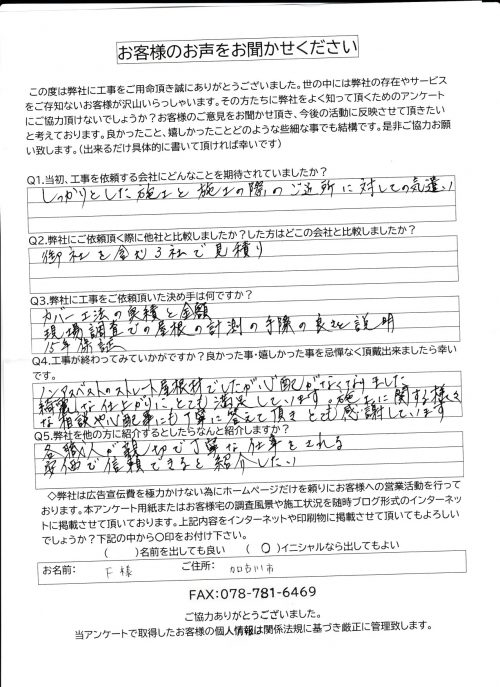 お客様のお声をお聞かせください
この度は弊社に工事をご用命頂き誠にありがとうございました。世の中には弊社の存在やサービス
をご存知ないお客様が沢山いらっしゃいます。その方たちに弊社をよく知って頂くためのアンケート
にご協力頂けないでしょうか？お客様のご意見をお聞かせ頂き、今後の活動に反映させて頂きたい
と考えております。良かったこと、嬉しかったことどのような些細な事でも結構です。是非ご協力お願
い致します。（出来るだけ具体的に書いて頂ければ幸いです）
Q1.当初、工事を依頼する会社にどんなことを期待されていましたか？
しっかりとした施工と施工の際のご近所に対しての気遣い
Q2.弊社にご依頼頂く際に他社と比較しましたか？した方はどこの会社と比較しましたか？
御社を含む3社で見積り
Q3.弊社に工事をご依頼頂いた決め手は何ですか？
カバー工法の実積と金額
現場調査での屋根の計測の手際の良さと説明
15年保証
Q4.工事が終わってみていかがですか？良かった事・嬉しかった事を忌憚なく頂戴出来ましたら幸い
です。
ノンアスベストのストレート屋根材でしたが心配がなくなりました
綺麗な仕上がりにとても満足しています。施工に関する様々
な相談や心配事にも丁寧に答えて頂きとても感謝しています
Q5.弊社を他の方に紹介するとしたらなんと紹介しますか？
各職人が親切で丁寧な仕事をされる
安価で信頼できると紹介したい
◇弊社は広告宣伝費を極力かけない為にホームページだけを頼りにお客様への営業活動を行って
おります。本アンケート用紙またはお客様宅の調査風景や施工状況を随時ブログ形式のインターネッ
トに掲載させて頂いております。上記内容をインターネットや印刷物に掲載させて頂いてもよろしい
でしょうか？下記の中から〇印をお付け下さい。
（　）名前を出しても良い　（ ○ ）イニシャルなら出してもよい
お名前： F 様　ご住所： 加古川市
FAX:078-781-6469
ご協力ありがとうございました。
当アンケートで取得したお客様の個人情報は関係法規に基づき厳正に管理致します。